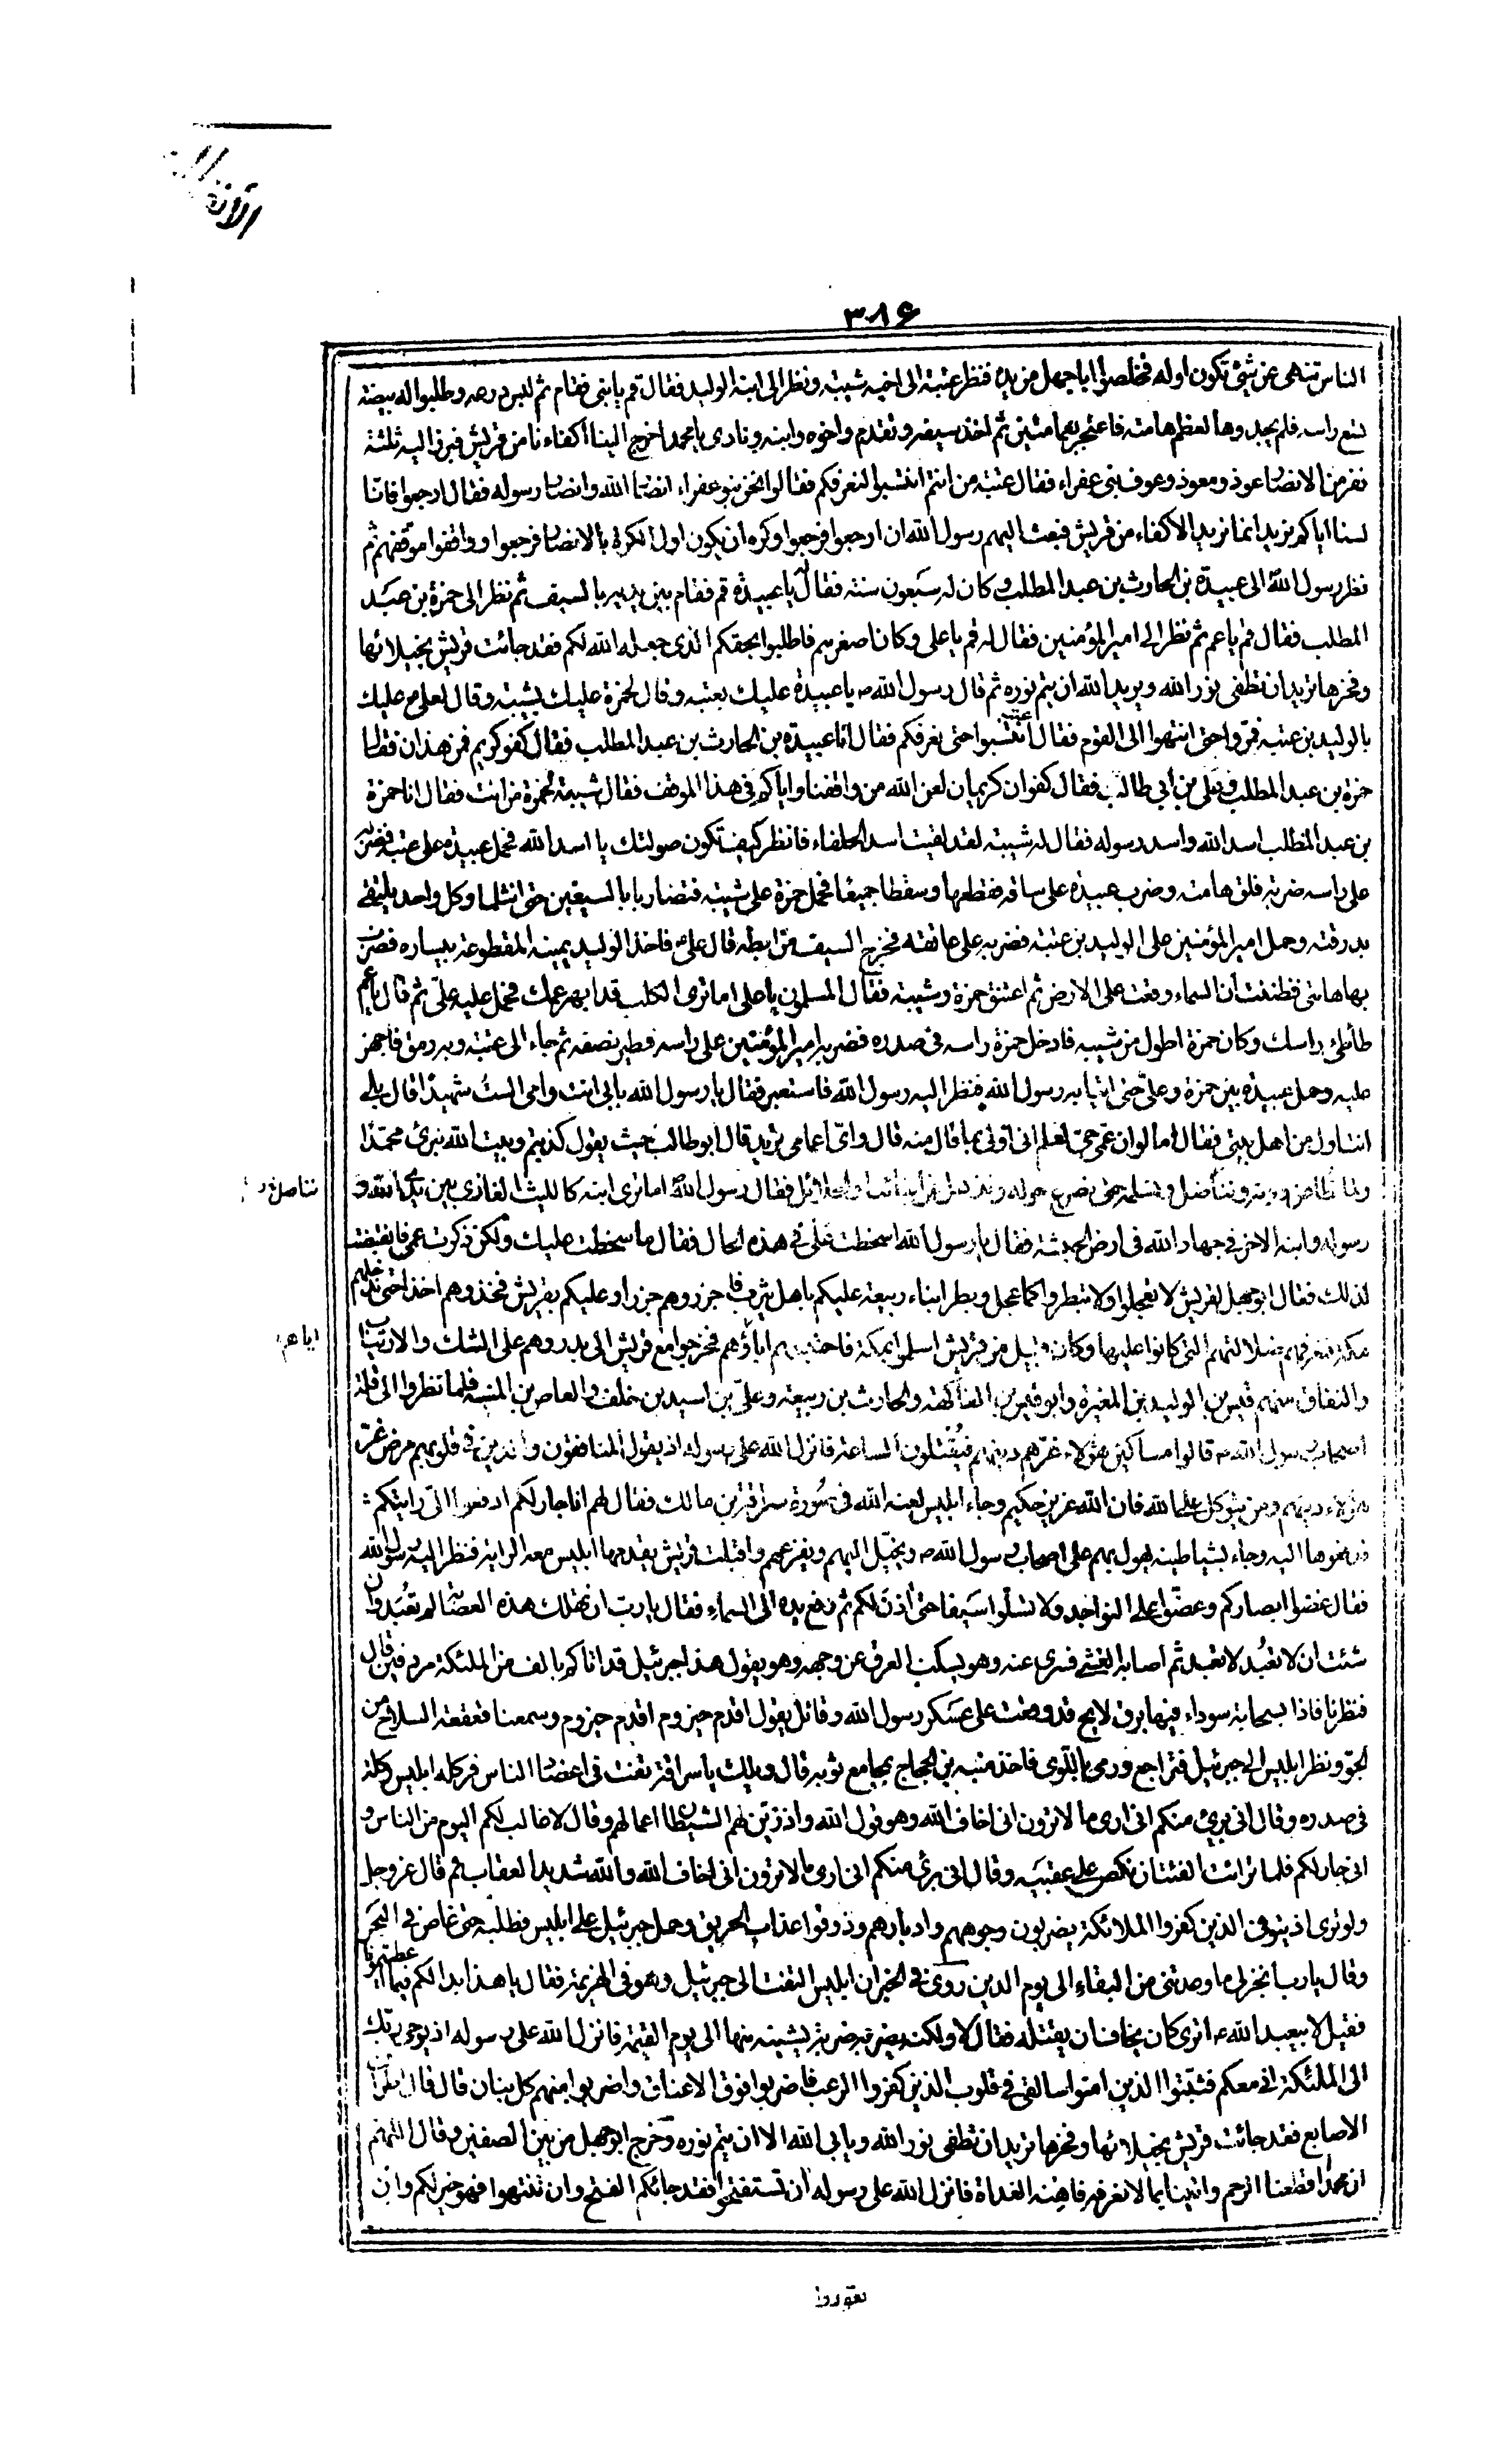 ٣٨۶
الناس تنهى عن شئ تكون اوله فخلصوا اباجهل من يده فنظر عتبة الى اخيه شيبة ونظر الى ابنه الوليد فقال قم يا بنى فقام ثم لبس درعه وطلبوا له بيضة
تسع راسه فلم يجدوها لعظم هامته فاعتجر بعمامتين ثم اخذ سيفه وتقدم واخوه وابنه ونادى يا محمد اخرج الينا اكفاءنا من قريش فبرز اليه ثلثة
نفر من الانصار عوذ ومعوذ وعوف بنى عفراء فقال عتبة من انتم انتسبوا لنعرفكم فقالوا نحن بنو عفراء انصار الله وانصار رسوله فقال ارجعوا فانا
لسنا اياكم نريد انما نريد الاكفاء من قريش فبعث اليهم رسول الله ان ارجعوا فرجعوا وكره ان يكون اول الكرة بالانصار فرجعوا وواقفوا موقفهم ثم
نظر رسول الله الى عبيدة بن الحارث بن عبد المطلب وكان له سبعون سنة فقال له يا عبيدة قم فقام بين يديه بالسيف ثم نظر الى حمزة بن عبد
المطلب فقال قم يا عم ثم نظر الى امير المؤمنين فقال له قم يا على وكان اصغرهم فاطلبوا بحقكم الذى جعله الله لكم فقد جائت قريش بخيلائها
وفخرها تريد ان تطفى نور الله ويريد الله ان يتم نوره ثم قال رسول الله ص يا عبيدة عليك بعتبة وقال لحمزة عليك بشيبة وقال لعلى ع عليك
بالوليد بن عتبة فمروا حتى انتهوا الى القوم فقال عتبة انتسبوا حتى نعرفكم فقال انا عبيدة بن الحارث بن عبد المطلب فقال كفو كريم فمن هذان فقال
حمزة بن عبد المطلب وعلى بن أبي طالب فقال كفوان كريمان لعن الله من واقفنا واياكم فى هذا الموقف فقال شيبة لحمزة من انت فقال انا حمزة
بن عبد المطلب اسد الله واسد رسوله فقال له شيبة لقد لقيت اسد الحلفاء فانظر كيف تكون صولتك يا اسد الله فحمل عبيدة على عتبة فضربه
على راسه ضربة فلق هامته وضرب عبيدة على ساقه فقطعها وسقطا جميعا فحمل حمزة على شيبة فتضاربا بالسيفين حتى انثلما وكل واحد يتقى
بدرقته وحمل امير المؤمنين على الوليد بن عتبة فضربه على عاتقه فخرج السيف من ابطه قال على ع فاخذ الوليد يمينه المقطوعة بيساره فضرب
بها هامتى فظننت أن السماء وقعت على الارض ثم اعتنق حمزة وشيبة فقال المسلمون يا على اما ترى الكلب قد ابهر عمك فحمل عليه على ثم قال يا عم
طأطئ راسك وكان حمزة اطول من شيبه فادخل حمزة راسه فى صدره فضربه امير المؤمنين على راسه فطير نصفه ثم جاء الى عتبة وبه رمق فاجهز
عليه وحمل عبيدة بين حمزة وعلى حتى اتيا به رسول الله فنظر اليه رسول الله فاستعبر فقال يا رسول الله بابى انت وامى الستُ شهيدا قال بلى
انت اول من اهل بيتى فقال اما لو ان عمى حى لعلم انى اولى بما قال منه قال واى اعمامى تريد قال ابو طالب حيث يقول كذبتم وبيت الله نبرئ محمدا
ولما نطاعن دونه ونناضل ونسلمه حتى نصرع حوله ونذهل عن ابنائنا والحلائل فقال رسول الله اما ترى ابنه كالليث الغازى بين يدى الله و
رسوله وابنه الاخر فى جهاد الله فى ارض الحبشة فقال يا رسول الله اسخطت على فى هذه الحال فقال ما سخطت عليك ولكن ذكرت عمى فانقبضت
لذلك فقال ابو جهل لقريش لا تعجلوا ولا تبطروا كما عجل وبطر ابناء ربيعة عليكم باهل يثرب فاجزروهم جزرا وعليكم بقريش فخذوهم اخذا حتى ندخلهم
مكة فنعرفهم ضلالتهم التى كانوا عليها وكان قبيل من قريش اسلموا بمكة فاحتبسهم اباؤهم فخرجوا مع قريش الى بدر وهم على الشك والارتياب
والنفاق منهم قيس بن الوليد بن المغيرة وابو قيس بن الفاكهة والحارث بن ربيعة وعلى بن اسيد بن خلف والعاص بن المنبه فلما نظروا الى قلة
اصحاب رسول الله ص قالوا مساكين هؤلاء غرهم دينهم فيُقتلون الساعة فانزل الله على رسوله اذ يقول المنافقون والذين فى قلوبهم مرض غرّ
هؤلاء دينهم ومن يتوكل على الله فان الله عزيز حكيم وجاء ابليس لعنه الله فى صورة سراقة بن مالك فقال لهم انا جار لكم ادفعوا الىّ رايتكم
فدفعوها اليه وجاء بشياطينه يهول بهم على اصحاب رسول الله ص ويخيّل اليهم ويفزعهم واقبلت قريش يقدمها ابليس معه الراية فنظر اليه رسول الله
فقال غضوا ابصاركم وعضوا على النواجد ولا تسلوا سيفا حتى أذن لكم ثم رفع يده الى السماء فقال يا رب ان تهلك هذه العصابة لم تُعبد وان
شئت ان لا تعبُد لا تعبد ثم أصابه الغشى فسرى عنه وهو يسكب العرق عن وجهه وهو يقول هذا جبرئيل قد اتاكم بالف من الملئكة مردفين قال
فنظرنا فاذا بسحابة سوداء فيها برق لايح قد وقعت على عسكر رسول الله وقائل يقول اقدم حيزوم اقدم حيزوم وسمعنا قعقعة السلاح من
الجوّ ونظر ابليس الى جبرئيل فتراجع ورمى باللوى فاخذ منبه بن الحجاج بمجامع ثوبه قال ويلك يا سراقة تفت فى اعضاد الناس فركله ابليس ركلة
فى صدره وقال انى برئ منكم انى ارى ما لا ترون انى اخاف الله وهو قول الله واذ زين لهم الشيطان اعمالهم وقال لا غالب لكم اليوم من الناس و
انى جار لكم فلما ترائت الفئتان نكص على عقبيه وقال انى برئ منكم انى ارى ما لا ترون انى اخاف الله والله شديد العقاب ثم قال عز وجل
ولو ترى اذ يتوفى الذين كفروا الملائكة يضربون وجوههم وادبارهم وذوقوا عذاب الحريق وحمل جبرئيل على ابليس فطلبه حتى غاص فى البحر
وقال يا رب انجز لى ما وعدتنى من البقاء الى يوم الدين روى فى الخبر ان ابليس التفت الى جبرئيل وهو فى الهزيمة فقال يا هذا بدا لكم فيما اعطيتمونا
فقيل لابيعبد الله ع اترى كان يخاف ان يقتله فقال لا ولكنه يضربه ضربة يشينه منها الى يوم القيمة فانزل الله على رسوله اذ يوحى ربك
الى الملئكة انى معكم فثبتوا الذين امنوا سالقى فى قلوب الذين كفروا الرعب فاضربوا فوق الاعناق واضربوا منهم كل بنان قال قال اطراف
الاصابع فقد جائت قريش بخيلائها وفخرها تريد ان تطفى نور الله ويابى الله الا ان يتم نوره وخرج ابو جهل من بين الصفين وقال اللهم
ان محمدا قطعنا الرحم واتينا بما لا نعرفه فاهنه الغداة فانزل الله على رسوله ان تستفتحوا فقد جائكم الفتح وان تنتهوا فهو خير لكم وان
تعودوا